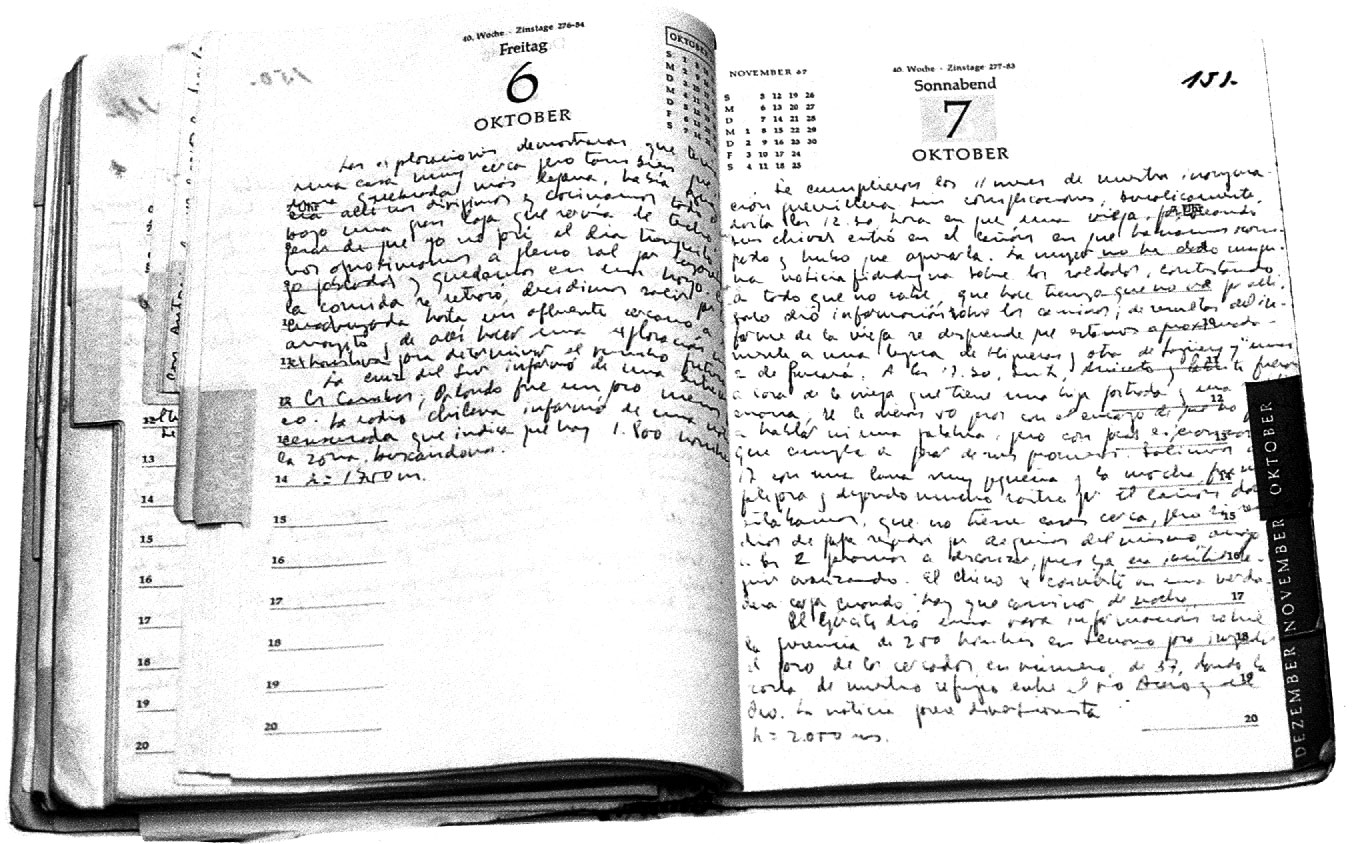 150.
40. Woche - Zinstage 276-84
Freitag
6
OKTOBER
OKTOBER
Las exploraciones demostraron que
una casa muy cerca pero también
quebrada más lejana, había
allí nos dirigimos y cocinamos todo
bajo una gran laja que servía de techo
pesar de que yo no pasé el día tranquilo
nos aproximamos a pleno sol por
poblados y quedamos en un hoyo.
la comida se retrasó, decidimos salir por
madrugada hasta un afluente cercano a
arroyito y de allí hacer una exploración
exhaustiva para determinar el rumbo futuro
La cruz del Sur informó de una
Orlando fue un poco menos
La radio chilena informó de una
censurada que indica que hay 1.800 hombres
la zona buscándonos.
h = 1750 m.
12
13
14
15
16
17
18
19
20
14
15
16
17
18
19
20
NOVEMBER 67
S 5 12 19 26
M 6 13 20 27
D 7 14 21 28
M 1 8 15 22 29
D 2 9 16 23 30
F 3 10 17 24
S 4 11 18 25
40. Woche - Zinstage 277-83
Sonnabend
7
OKTOBER
151.
Se cumplieron los 11 meses de nuestra inaugura-
ción guerrillera sin complicaciones, bucólicamente,
hasta las 12.30, hora en que una vieja, pastoreando
sus chivas entró en el cañón en que habíamos acam-
pado y hubo que apresarla. La mujer no ha dado ningu-
na noticia fidedigna sobre los soldados, contestando
a todo que no sabe, que hace tiempo que no va por allí.
Sólo dió información sobre los caminos; de resultas del in-
forme de la vieja se desprende que estamos aproximada-
mente a una legua de Higueras y otra de Jagüey y unas
2 de Pucará. A las 17.30, Inti, Aniceto y Pablito fueron
a casa de la vieja que tiene una hija postrada y una
enana; se le dieron 50 pesos con el encargo de que no
a hablar ni una palabra, pero con pocas esperanzas
que cumpla a pesar de sus promesas. Salimos
17 con una luna muy pequeña y la marcha fue
fatigosa y dejando mucho rastro por el cañón donde
estábamos, que no tiene casas cerca, pero
de papa regados por acequias del mismo arroyo
A las 2 paramos a descansar, pues ya era inútil se-
guir avanzando. El Chino se convierte en una verda-
dera carga cuando hay que caminar de noche.
El Ejército dió una rara información sobre
la presencia de 250 hombres en Serrano para impedir
el paso de los cercados en número de 37, dando la
zona de nuestro refugio entre el río Acero y el
Oro. La noticia parece diversionista
h = 2.000 ms.
11
12
13
14
15
16
17
18
19
20
OKTOBER
NOVEMBER
DEZEMBER